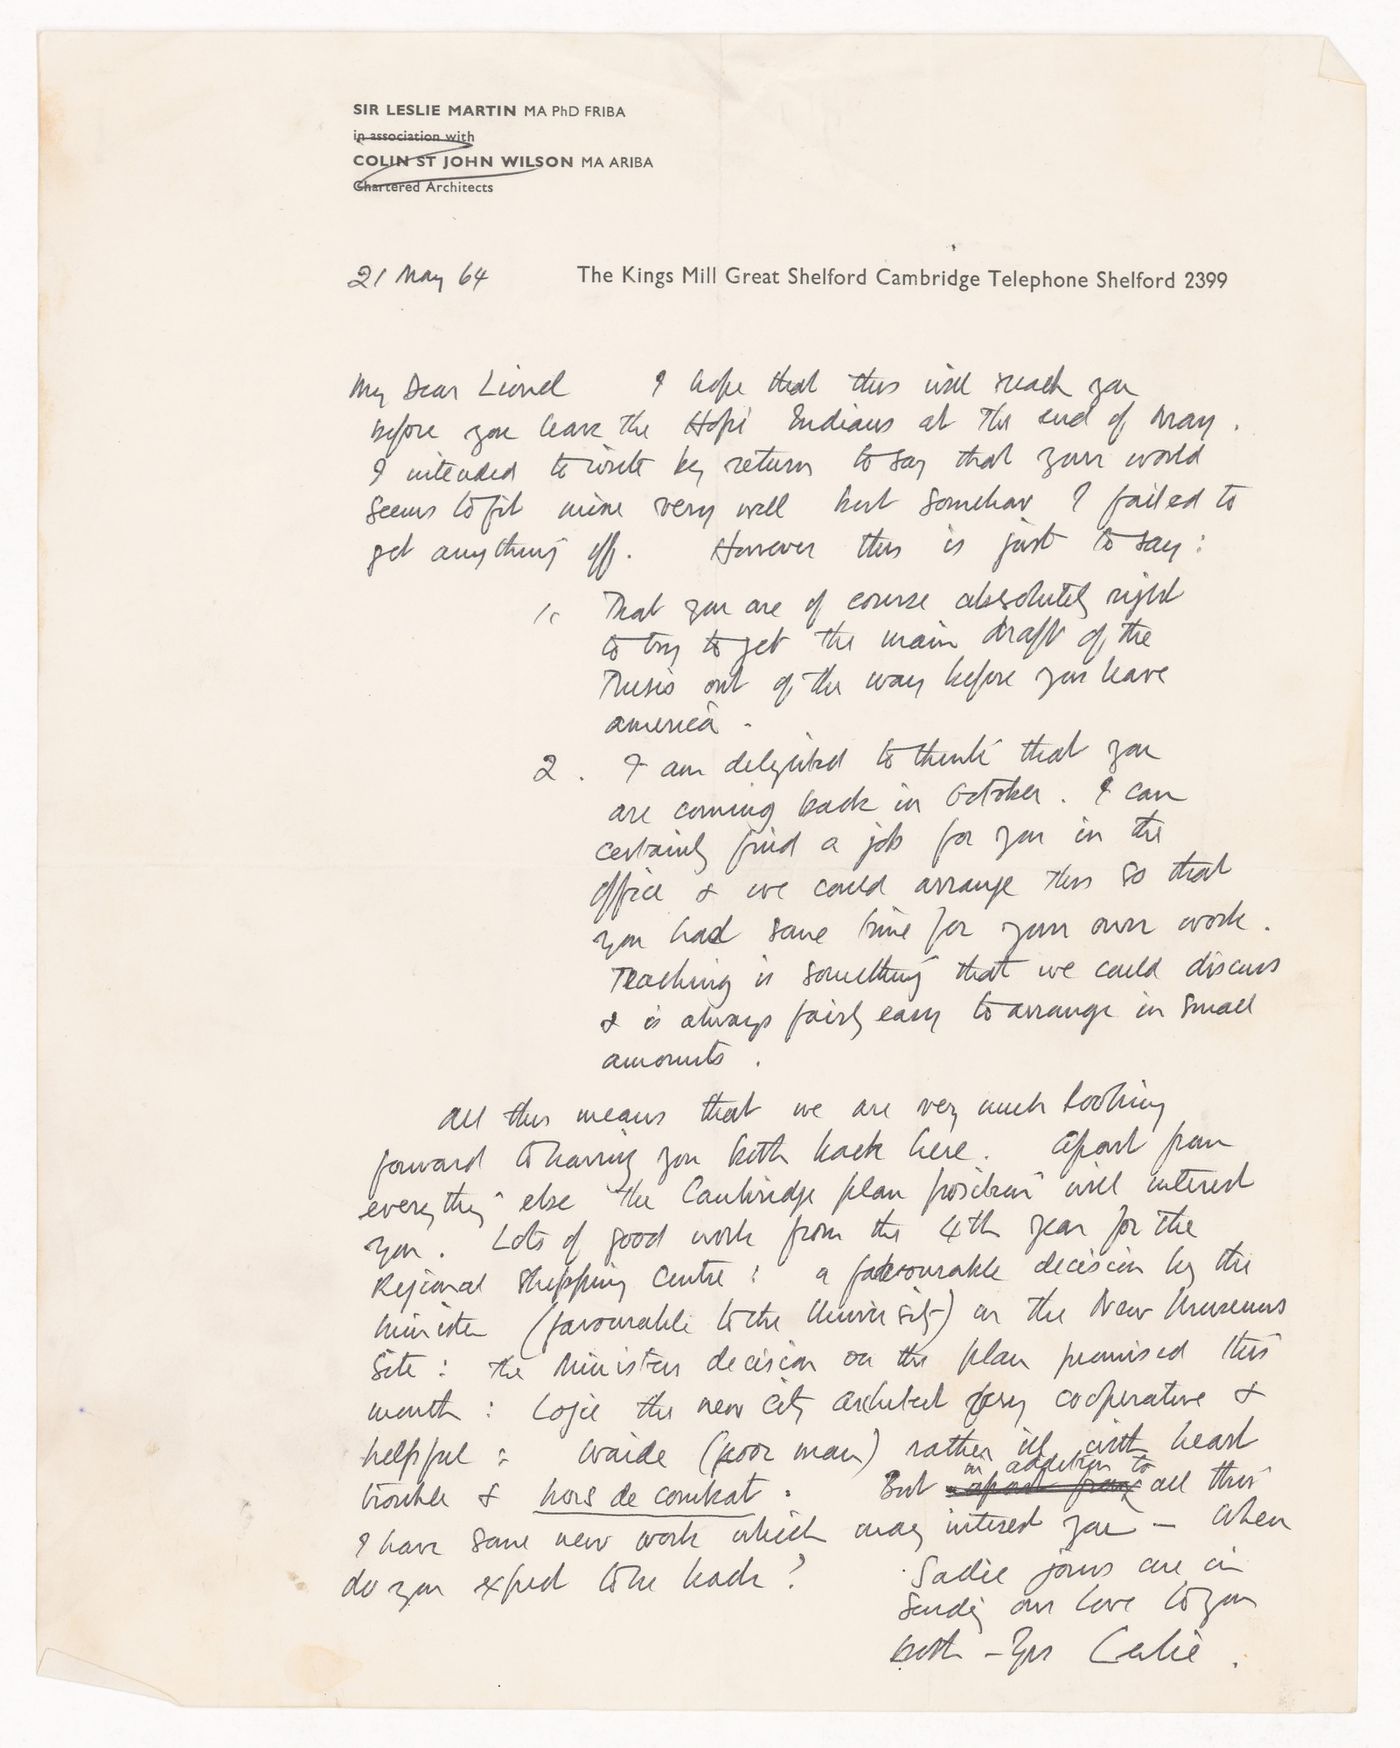 SIR LESLIE MARTIN MA PhD FRIBA
in association with
COLIN ST JOHN WILSON MA ARIBA
Chartered Architects
21 May 64 The Kings Mill Great Shelford Cambridge Telephone Shelford 2399
My Dear Lionel I hope that this will reach you
before you leave the Hopi Indians at the end of May.
I intended to write by return to say that your world
seems to fit mine very well but somehow I failed to
get anything off. However this is just to say:
1. That you are of course absolutely right
to try to get the main draft of the
Thesis out of the way before you leave
america.
2. I am delighted to think that you
are coming back in October. I can
certainly find a job for you in the
office & we could arrange this so that
you had some time for your own work.
Teaching is something that we could discuss
& is always fairly easy to arrange in small
amounts.
All this means that we are very much looking
forward to having you both back here. Apart from
everything else the Cambridge plan position will interest
you. Lots of good work from the 4th year for the
Regional Shopping Centre: a favourable decision by the
Minister (favourable to the University) on the New Museums
Site: the Ministers decision on the plan promised this
month: Logie the new city architect very cooperative &
helpful: Waide (poor man) rather ill with heart
trouble & hors de combat. But in addition to
apart from all this
I have some new work which may interest you — When
do you expect to be back? Sadie joins me in
sending our love to you
both - Yrs Leslie.